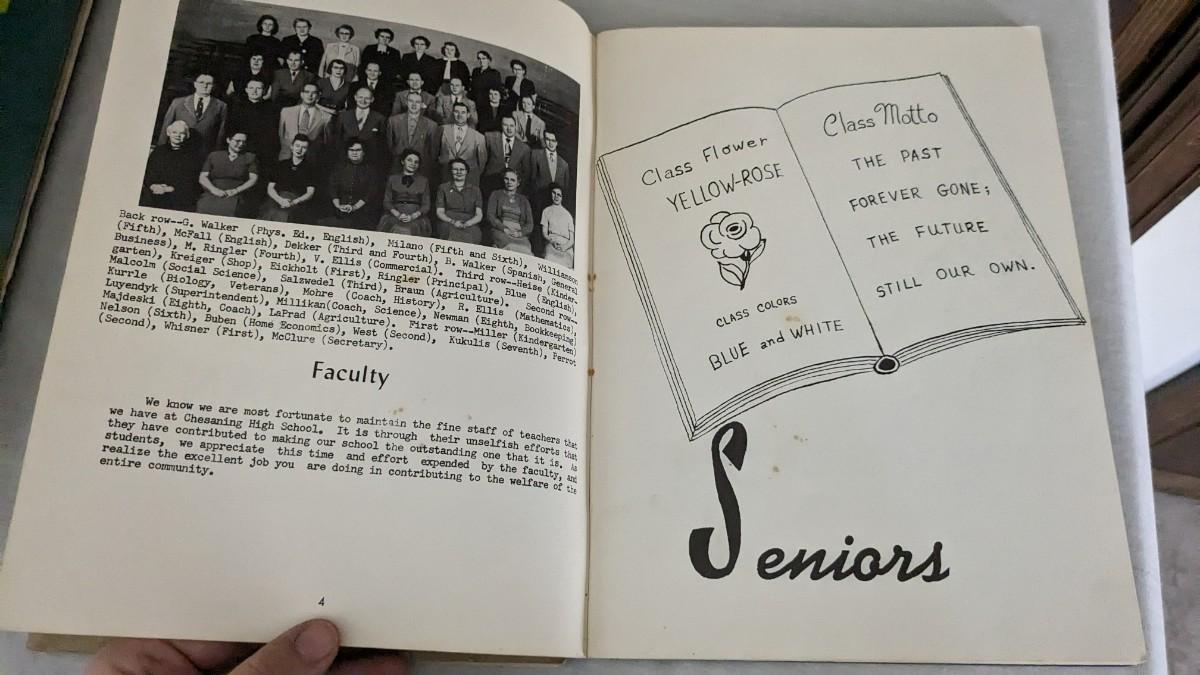 Back row--G. Walker (Phys. Ed., English), Milano (Fifth and Sixth), Williamson
(Fifth), McFall (English), Dekker (Third and Fourth), B. Walker (Spanish, General
Business), M. Ringler (Fourth), V. Ellis (Commercial). Third row--Heise (Kinder-
garten), Kreiger (Shop), Eickholt (First), Ringler (Principal), Blue (English),
Malcolm (Social Science), Salzwedel (Third), Braun (Agriculture). Second row--
Kurrle (Biology, Veterans), Mohre (Coach, History), R. Ellis (Mathematics),
Luyendyk (Superintendent), Millikan(Coach, Science), Newman (Eighth, Bookkeeping)
Majdeski (Eighth, Coach), LaPrad (Agriculture). First row--Miller (Kindergarten)
Nelson (Sixth), Buben (Home Economics), West (Second), Kukulis (Seventh), Perrot
(Second), Whisner (First), McClure (Secretary).
Faculty
We know we are most fortunate to maintain the fine staff of teachers that
we have at Chesaning High School. It is through their unselfish efforts that
they have contributed to making our school the outstanding one that it is. As
students, we appreciate this time and effort expended by the faculty, and
realize the excellent job you are doing in contributing to the welfare of the
entire community.
4
Class Flower
YELLOW-ROSE
CLASS COLORS
BLUE and WHITE
Class Motto
THE PAST
FOREVER GONE;
THE FUTURE
STILL OUR OWN.
Seniors